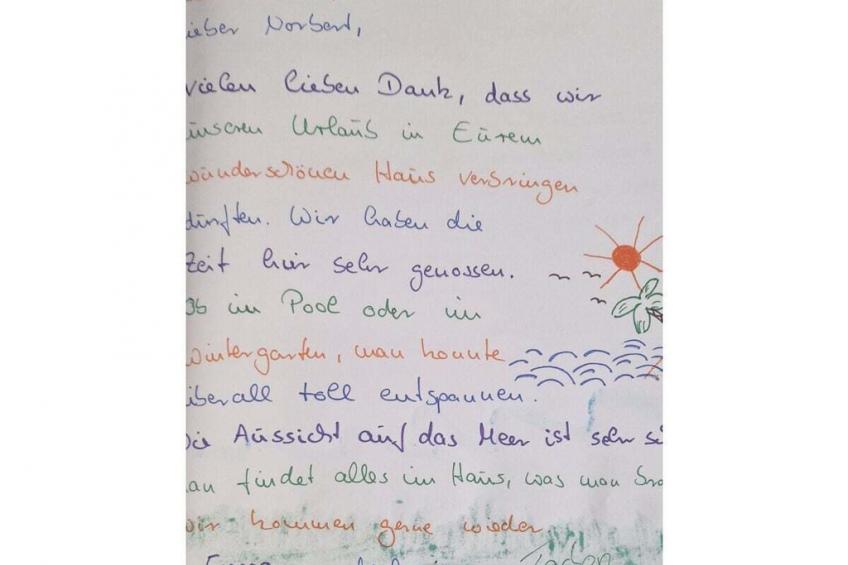 ieber Norbert,
vielen lieben Dank, dass wir
unseren Urlaub in Eurem
wunderschönen Haus verbringen
dürften. Wir haben die
Zeit hier sehr genossen.
Ob im Pool oder im
Wintergarten, man konnte
überall toll entspannen.
Die Aussicht auf das Meer ist sehr
an findet alles im Haus, was man bra
wir kommen gerne wieder